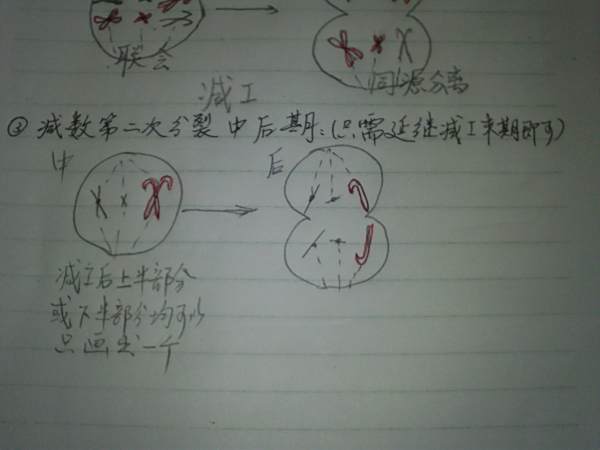 联会
同源分离
减I
③ 减数第二次分裂中后期:(只需延继减I末期即可)
中
后
减I后上半部分
或下半部分均可以
只画出一个